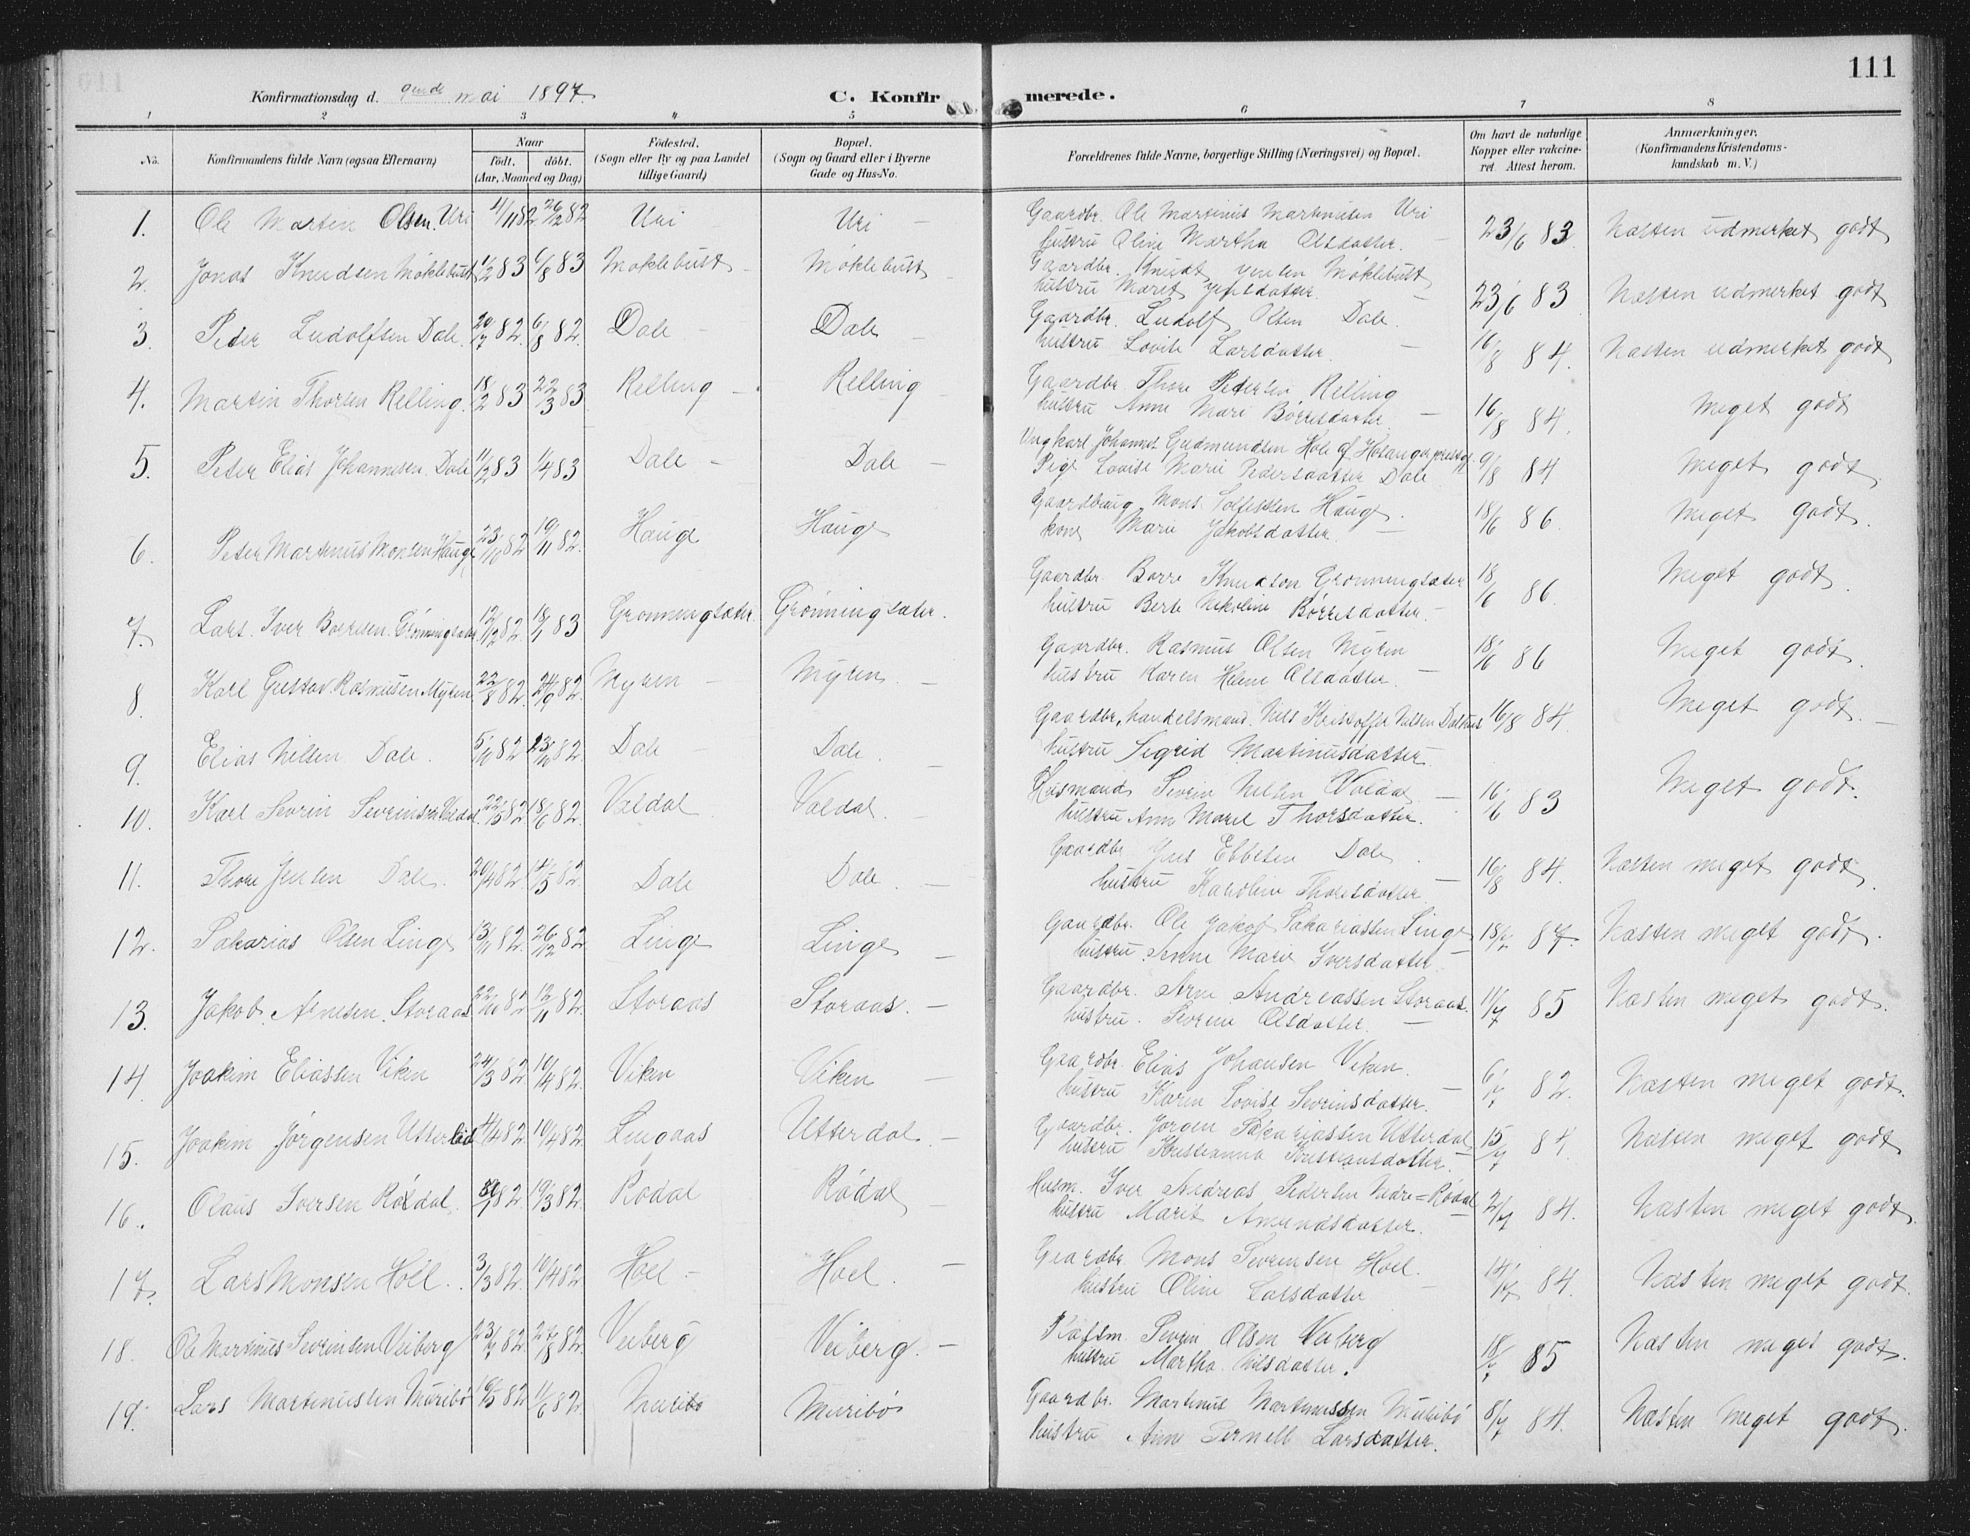 111
Konfirmationsdag d. 9nde mai 1897.
C. Konfirmerede.
1 2 3 4 5 6 7 8
No. Konfirmandens fulde Navn (ogsaa Efternavn)
Naar
födt. döbt.
(Aar, Maaned og Dag)
Födested.
(Sogn eller By og paa Landet
tillige Gaard)
Bopæl.
(Sogn og Gaard eller i Byerne
Gade og Hus-No.
Forældrenes fulde Navne, borgerlige Stilling (Næringsvei) og Bopæl.
Om havt de naturlige
Kopper eller vakcine-
ret. Attest herom.
Anmærkninger.
(Konfirmandens Kristendoms-
kundskab m. V.)
1. Ole Marten Olsen Uri 4/11 82 26/12 82 Uri Uri – Gaardbr. Ole Martinus Martinusen Uri 23/6 83 Næsten udmerket godt
hustru Oline Martha Olsdatter.
2. Jonas Knudsen Möklebust 1/2 83 6/8 83 Möklebust Möklebust Gaardbr. Knudt Jensen Möklebust 23/6 83 Næsten udmerket godt
hustru Maret Jensdatter.
3. Peter Ludolfsen Dale 20/7 82 6/8 82 Dale – Dale – Gaardbr. Ludolf Olsen Dale 16/8 84. Næsten udmerket godt
hustru Lovise Larsdatter.
4. Martin Thorsen Relling. 18/2 83 22/3 83 Relling – Relling – Gaardbr. Thore Pedersen Relling 16/8 84. Meget godt
hustru Anne Mari Börresdatter
5. Peter Elias Johannesen Dale 11/2 83 1/4 83 Dale – Dale – Ungkarl Johannes Gudmundsen Hole af 9/8 84 Meget godt
Pige Lovise Marie Pedersdatter Dale
6. Peter Martinus Monsen Hauge 23/10 82 19/11 82. Hauge Hauge Mons Hauge. 18/6 86. Meget godt.
kone Marie Jakobsdatter.
7. Lars Iver Börresen Grönningsæter 12/12 82. 18/1 83 Grönningsæter Grönningsæter. Gaardbr. Börre Knudsen Grönningsæter 18/6 86. Meget godt.
hustru Berte Nikoline Börresdatter –
8. Karl Gustav Rasmusen Myren 22/8 82. 24/9 82. Myren – Myren. – Gaardbr. Rasmus Olsen Myren 18/6 86 Meget godt.
hustru Karen Helene Olsdatter.
9. Elias Nilsen Dale. 5/10 82 23/10 82. Dale – Dale. – Gaardbr. handelsmand. Nils Kristoffer Nilsen 16/8 84. Meget godt. –
hustru Sigrid Martinusdatter.
10. Karl Sevrin Sevrinsen Valdal. 22/5 82 18/6 82. Valdal Valdal. – Husmand Sevrin Nilsen Valdal – 16/6 83 Meget godt.
hustru Ann Maret Thorsdatter.
11. Thore Jensen Dale. 20/4 82. 14/5 82. Dale Dale. – Gaardbr Jens Ebbesen Dale – 16/8 84. Næsten meget godt.
hustru Karoline Thoresdatter
12. Sakarias Olsen Linge 13/11 82. 26/12 82 Linge Linge – Gaardbr. Ole Jakob Sakariassen Linge 87. Næsten meget godt.
hustru Anne Marie Iversdatter –
13. Jakob Arnesen Storaas 22/10 82 12/11 82. Storaas Storaas. – Gaardbr. Arne Andreassen Storaas. 85 Næsten meget godt.
hustru. Severine Olsdatter. –
14. Joakim Eliassen Viken 24/3 82. 10/4 82. Viken Viken – Gaardbr. Elias Johansen Viken. 6/7 82. Næsten meget godt.
hustru Karen Lovise Sevrinsdatter. –
15. Joakim Jörgensen Utterdal 4/4 82. 10/4 82. Lingaas Utterdal – Gaardbr. Jörgen Sakariassen Utterdal 15/7 84. Næsten meget godt
hustru Kristianna Kristiansdatter.
16. Olaus Iversen Rödal. 82. 19/3 82. Rödal Rödal – Husm. Iver Andreas Pedersen Nedre=Rödal 2/7 84. Næsten meget godt.
hustru Marit Amundsdatter.
17. Lars Monsen Höel. 3/3 82. 10/4 82 Hoel – Hoel. – Gaardbr Mons Sevrensen Hoel. 14/7 84. Næsten meget godt.
hustru Oline Larsdatter –
18. Ole Martinus Sevrinsen Veiberg 23/7 82. 27/8 82. Veiberg Veiberg. – Sevrin Olsen Veiberg 18/7 85 Næsten meget godt.
hustru Martha Nilsdatter.
19. Lars Martinussen Muribö 19/5 82. 11/6 82. Muribö Muribö Gaardbr. Martinus Martinussen Muribö 8/7 84. Næsten meget godt.
hustru Ann Pernell Larsdatter.